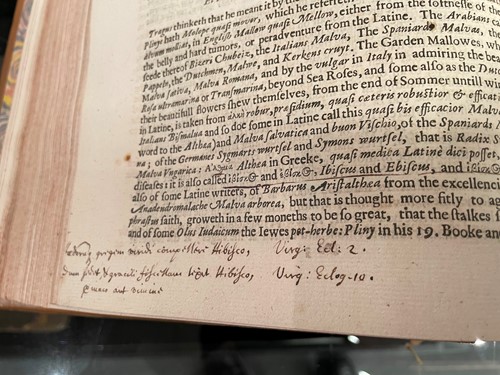 Tragus thinketh that he meant it by the
Pliny hath Molope quasi mover, which he refereth, either from the softnesse of the
alvum molliat, in English Mallow quasi Mellow,
the belly and hard tumors, or peradventure from the Latine. The Arabians
seede thereof Bizeri Chubeiz, the Italians Malva, The Spaniards Malvas, the
Pappeln, the Dutchmen, Malve, and Kerkens cruyt. The Garden Mallowes, wh
Malva sativa, Malva Romana, and by the vulgar in Italy in admiring the bea
Rosa ultramarina or Transmarina, beyond Sea Roses, and some also as the Du
their beautifull flowers shew themselves, from the end of Sommer untill win
in Latine, is taken from robur, præsidium, quasi ceteris robustior & efficat
Italians Bismalua and so doe some in Latine call this quasi bis efficacior Malv
word to the Althea) and Malva salvatica and buon Vischio, of the Spaniards
na; of the Germanes Sygmarts wurtsel and Symons wurtsel, that is Radix S
Malva Vngarica: Althea in Greeke, quasi medica Latinè dici posset
diseases: it is also called and Ibiscus and Ebiscus, and
also of some Latine writers, of Barbarus Aristalthea from the excellence
Anadendromalache Malva arborea, but that is thought more fitly to ag
phrastus saith, groweth in a few moneths to be so great, that the stalkes
and of some Olus Iudaicum the Iewes pot-herbe: Pliny in his 19. Booke an
viridi compellere Hibisco, Virg: Ecl: 2.
fiscellam texit Hibisco, Virg: Eclog-10.